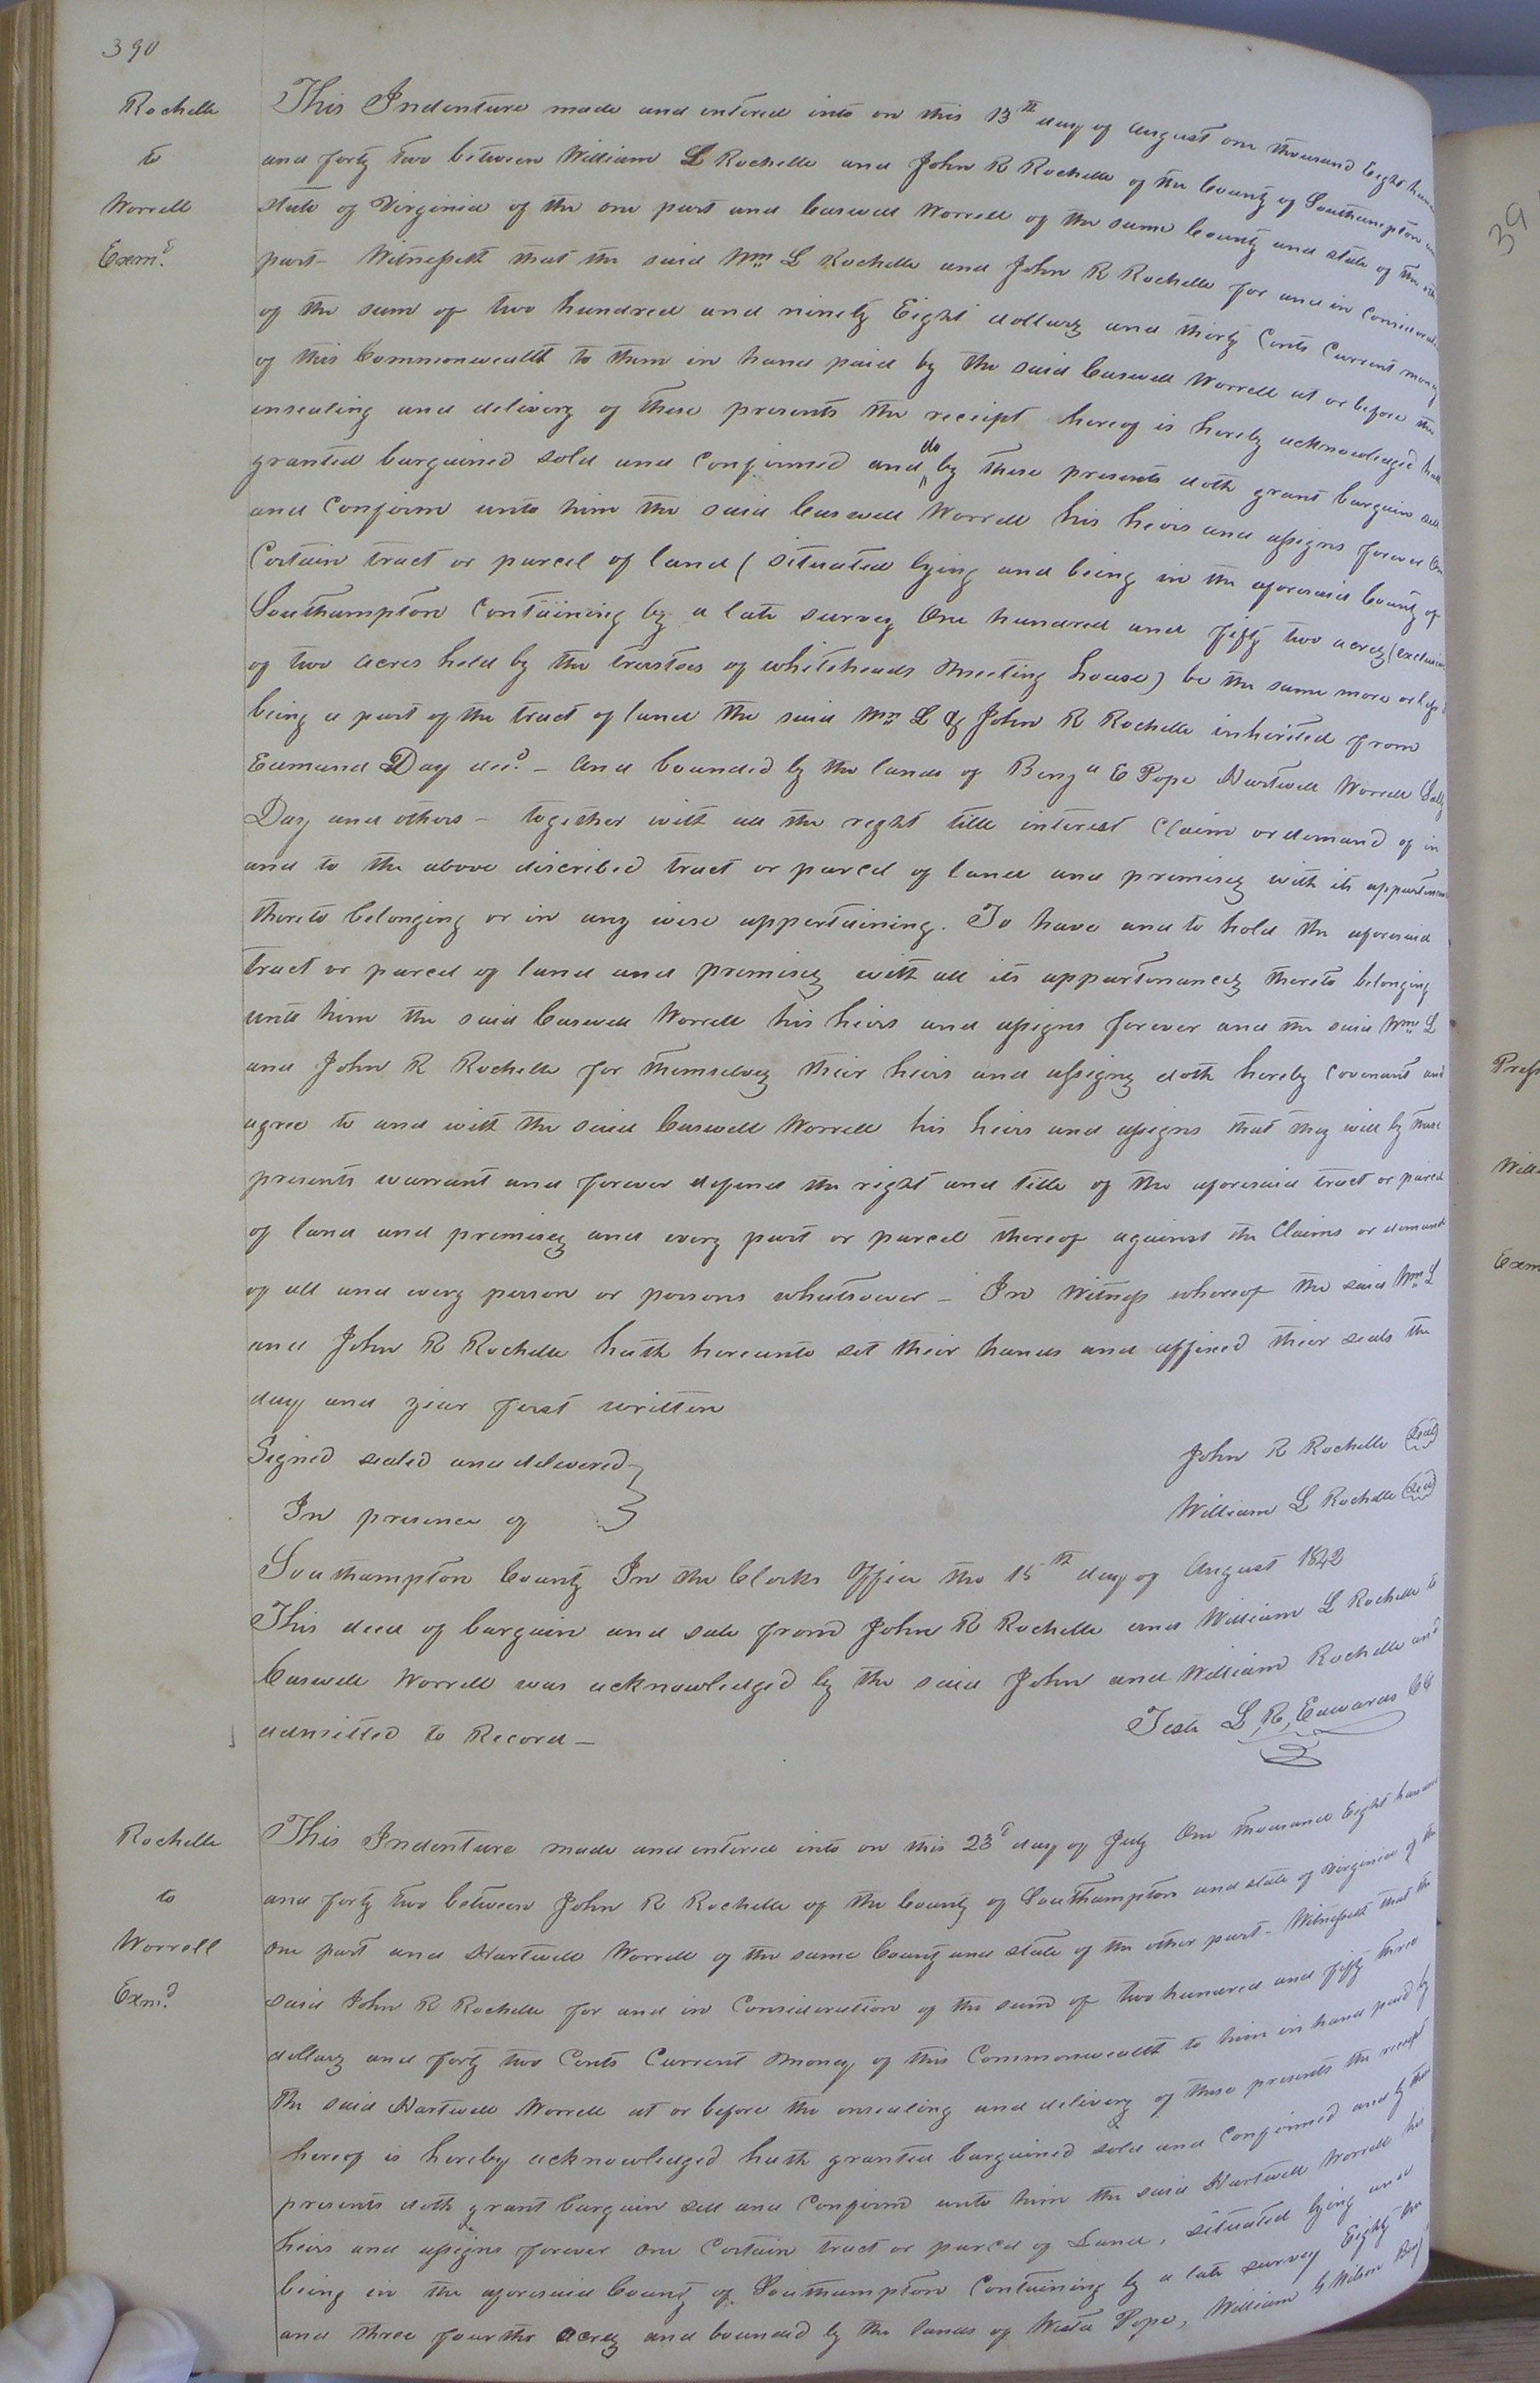 390
Rochelle
to
Worrell
Exmd.
This Indenture made and entered into on this 13th day of August one thousand Eight
and forty two between William L Rochelle and John R Rochelle of the County of Southampton
state of Virginia of the one part and Caswell Worrell of the same County and state of the
part - Witnesseth that the said Wm L Rochelle and John R Rochelle for and in
of the sum of two hundred and ninety Eight dollars and thirty Cents Current money
of this Commonwealth to them in hand paid by the said Caswell Worrell at or before the
ensealing and delivery of these presents the receipt hereof is hereby acknowledged
granted bargained sold and Confirmed and do by these presents doth grant bargain sell
and Confirm unto him the said Caswell Worrell his heirs and assigns forever
Certain tract or parcel of land ( situated lying and being in the aforesaid County of
Southampton Containing by a late survey One hundred and fifty two acres (exclusive
of two acres held by the trustees of whiteheads Meeting house) be the same more or less
being a part of the tract of land the said Wm L & John R Rochelle inherited from
Edmund Day decd. - And bounded by the lands of Benja E Pope Hartwell Worrell Sally
Day and others - together with all the right title interest Claim or demand of in
and to the above discribed tract or parcel of land and premises with its
thereto belonging or in any wise appertaining. To have and to hold the aforesaid
tract or parcel of land and premises with all its appurtenances thereto belonging
unto him the said Caswell Worrell his heirs and assigns forever and the said Wm L
and John R Rochelle for themselves their heirs and assigns doth hereby Covenant and
agree to and with the said Caswell Worrell his heirs and assigns that they will by these
presents warrant and forever defend the right and title of the aforesaid tract or parcel
of land and premises and every part or parcel thereof against the Claims or demand
of all and every person or persons whatsoever - In Witness whereof the said Wm L
and John R Rochelle hath hereunto set their hands and affixed their seals the
day and year first written
Signed sealed and delivered
In presence of
John R Rochelle (Seal)
William L Rochelle (Seal)
Southampton County In the Clerks Office the 15th day of August 1842
This deed of bargain and sale from John R Rochelle and William L Rochelle to
Caswell Worrell was acknowledged by the said John and William Rochelle and
admitted to Record -
Teste L, R, Edwards Clk
Rochelle
to
Worrell
Exmd.
This Indenture made and entered into on this 23d day of July One thousand Eight hundred
and forty two between John R Rochelle of the County of Southampton and state of Virginia of the
one part and Hartwell Worrell of the same County and state of the other part - Witnesseth that the
said John R Rochelle for and in Consideration of the sum of two hundred and fifty three
dollars and forty two Cents Current money of this Commonwealth to him in hand paid by
the said Hartwell Worrell at or before the ensealing and delivery of these presents the receipt
hereof is hereby acknowledged hath granted bargained sold and Confirmed and by these
presents doth grant bargain sell and Confirm unto him the said Hartwell Worrell his
heirs and assigns forever one Certain tract or parcel of Land, situated lying and
being in the aforesaid County of Southampton Containing by a late survey Eighty
and three fourths acres and bounded by the lands of Pope, William G Wilson
39
Exm